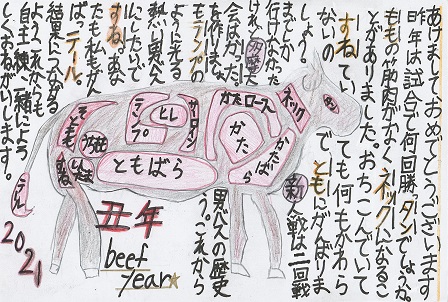 あけましておめでとうございます
昨年は試合で何回勝「タン」でしょうか。
ももの筋肉がなく「ネック」になるこ
とがありました。おちこんでいて
「すね」ていても何もかわら
ないので、ともにがんばりま
しょう。新人戦は二回戦
までしか
行けなかった
けれど
会はかた
男バスの歴史
を作りましょう。これから
もランプの
ように光る
熱い男バス
にしたいで
すね。あな
たも私もがん
ば「テール」
結果につながる
ようこれからも
自主練一緒によろ
しくおねがいします。
タン
ネック
かたロース
かた
かたばら
サーロイン
ヒレ
ランプ
ともばら
そともも
うちもも
しんたま
すね
テール
丑年
beef
year
2021